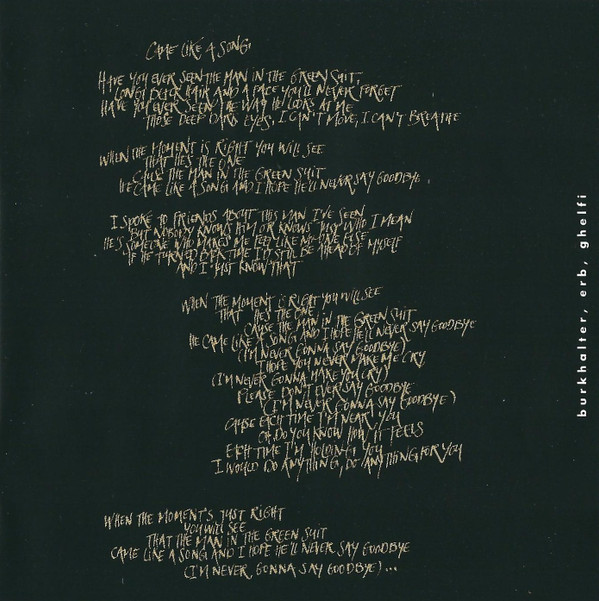 CAME LIKE A SONG
HAVE YOU EVER SEEN THE MAN IN THE GREEN SUIT
LONG BLACK HAIR AND A FACE YOU'LL NEVER FORGET
HAVE YOU EVER SEEN THE WAY HE LOOKS AT ME
THOSE DEEP DARK EYES, I CAN'T MOVE, I CAN'T BREATHE
WHEN THE MOMENT IS RIGHT YOU WILL SEE
THAT HE'S THE ONE
CAUSE THE MAN IN THE GREEN SUIT
HE CAME LIKE A SONG AND I HOPE HE'LL NEVER SAY GOODBYE.
I SPOKE TO FRIENDS ABOUT THIS MAN I'VE SEEN
BUT NOBODY KNOWS HIM OR KNOWS JUST WHO I MEAN
HE'S SOMEONE WHO MAKES ME FEEL LIKE NO-ONE ELSE
IF HE TURNED BACK TIME I'D STILL BE AHEAD OF MYSELF
AND I JUST KNOW THAT
WHEN THE MOMENT IS RIGHT YOU WILL SEE
THAT HE'S THE ONE
CAUSE THE MAN IN THE GREEN SUIT
HE CAME LIKE A SONG AND I HOPE HE'LL NEVER SAY GOODBYE
(I'M NEVER GONNA SAY GOODBYE)
I HOPE YOU NEVER MAKE ME CRY
(I'M NEVER GONNA MAKE YOU CRY)
PLEASE DON'T EVER SAY GOODBYE
(I'M NEVER GONNA SAY GOODBYE)
CAUSE EACH TIME I'M NEAR YOU
OH, DO YOU KNOW HOW IT FEELS
EACH TIME I'M HOLDING YOU
I WOULD DO ANYTHING, DO ANYTHING FOR YOU
WHEN THE MOMENT'S JUST RIGHT
YOU WILL SEE
THAT THE MAN IN THE GREEN SUIT
CAME LIKE A SONG AND I HOPE HE'LL NEVER SAY GOODBYE
(I'M NEVER GONNA SAY GOODBYE)...
burkhalter, erb, ghelfi